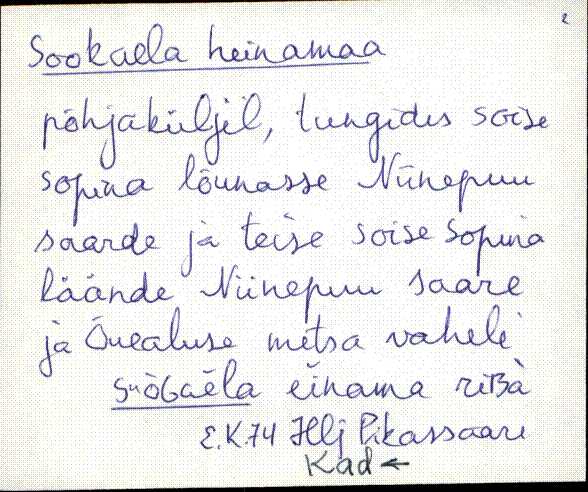 2
Sookaela heinamaa
põhjaküljel, tungides soise
sopina lõunasse Niinepuu
saarde ja teise soise sopina
läände Niinepuu saare
ja Õuealuse metsa vahele
einama
E.K.74 Hlj Pikassaare
Kad ←